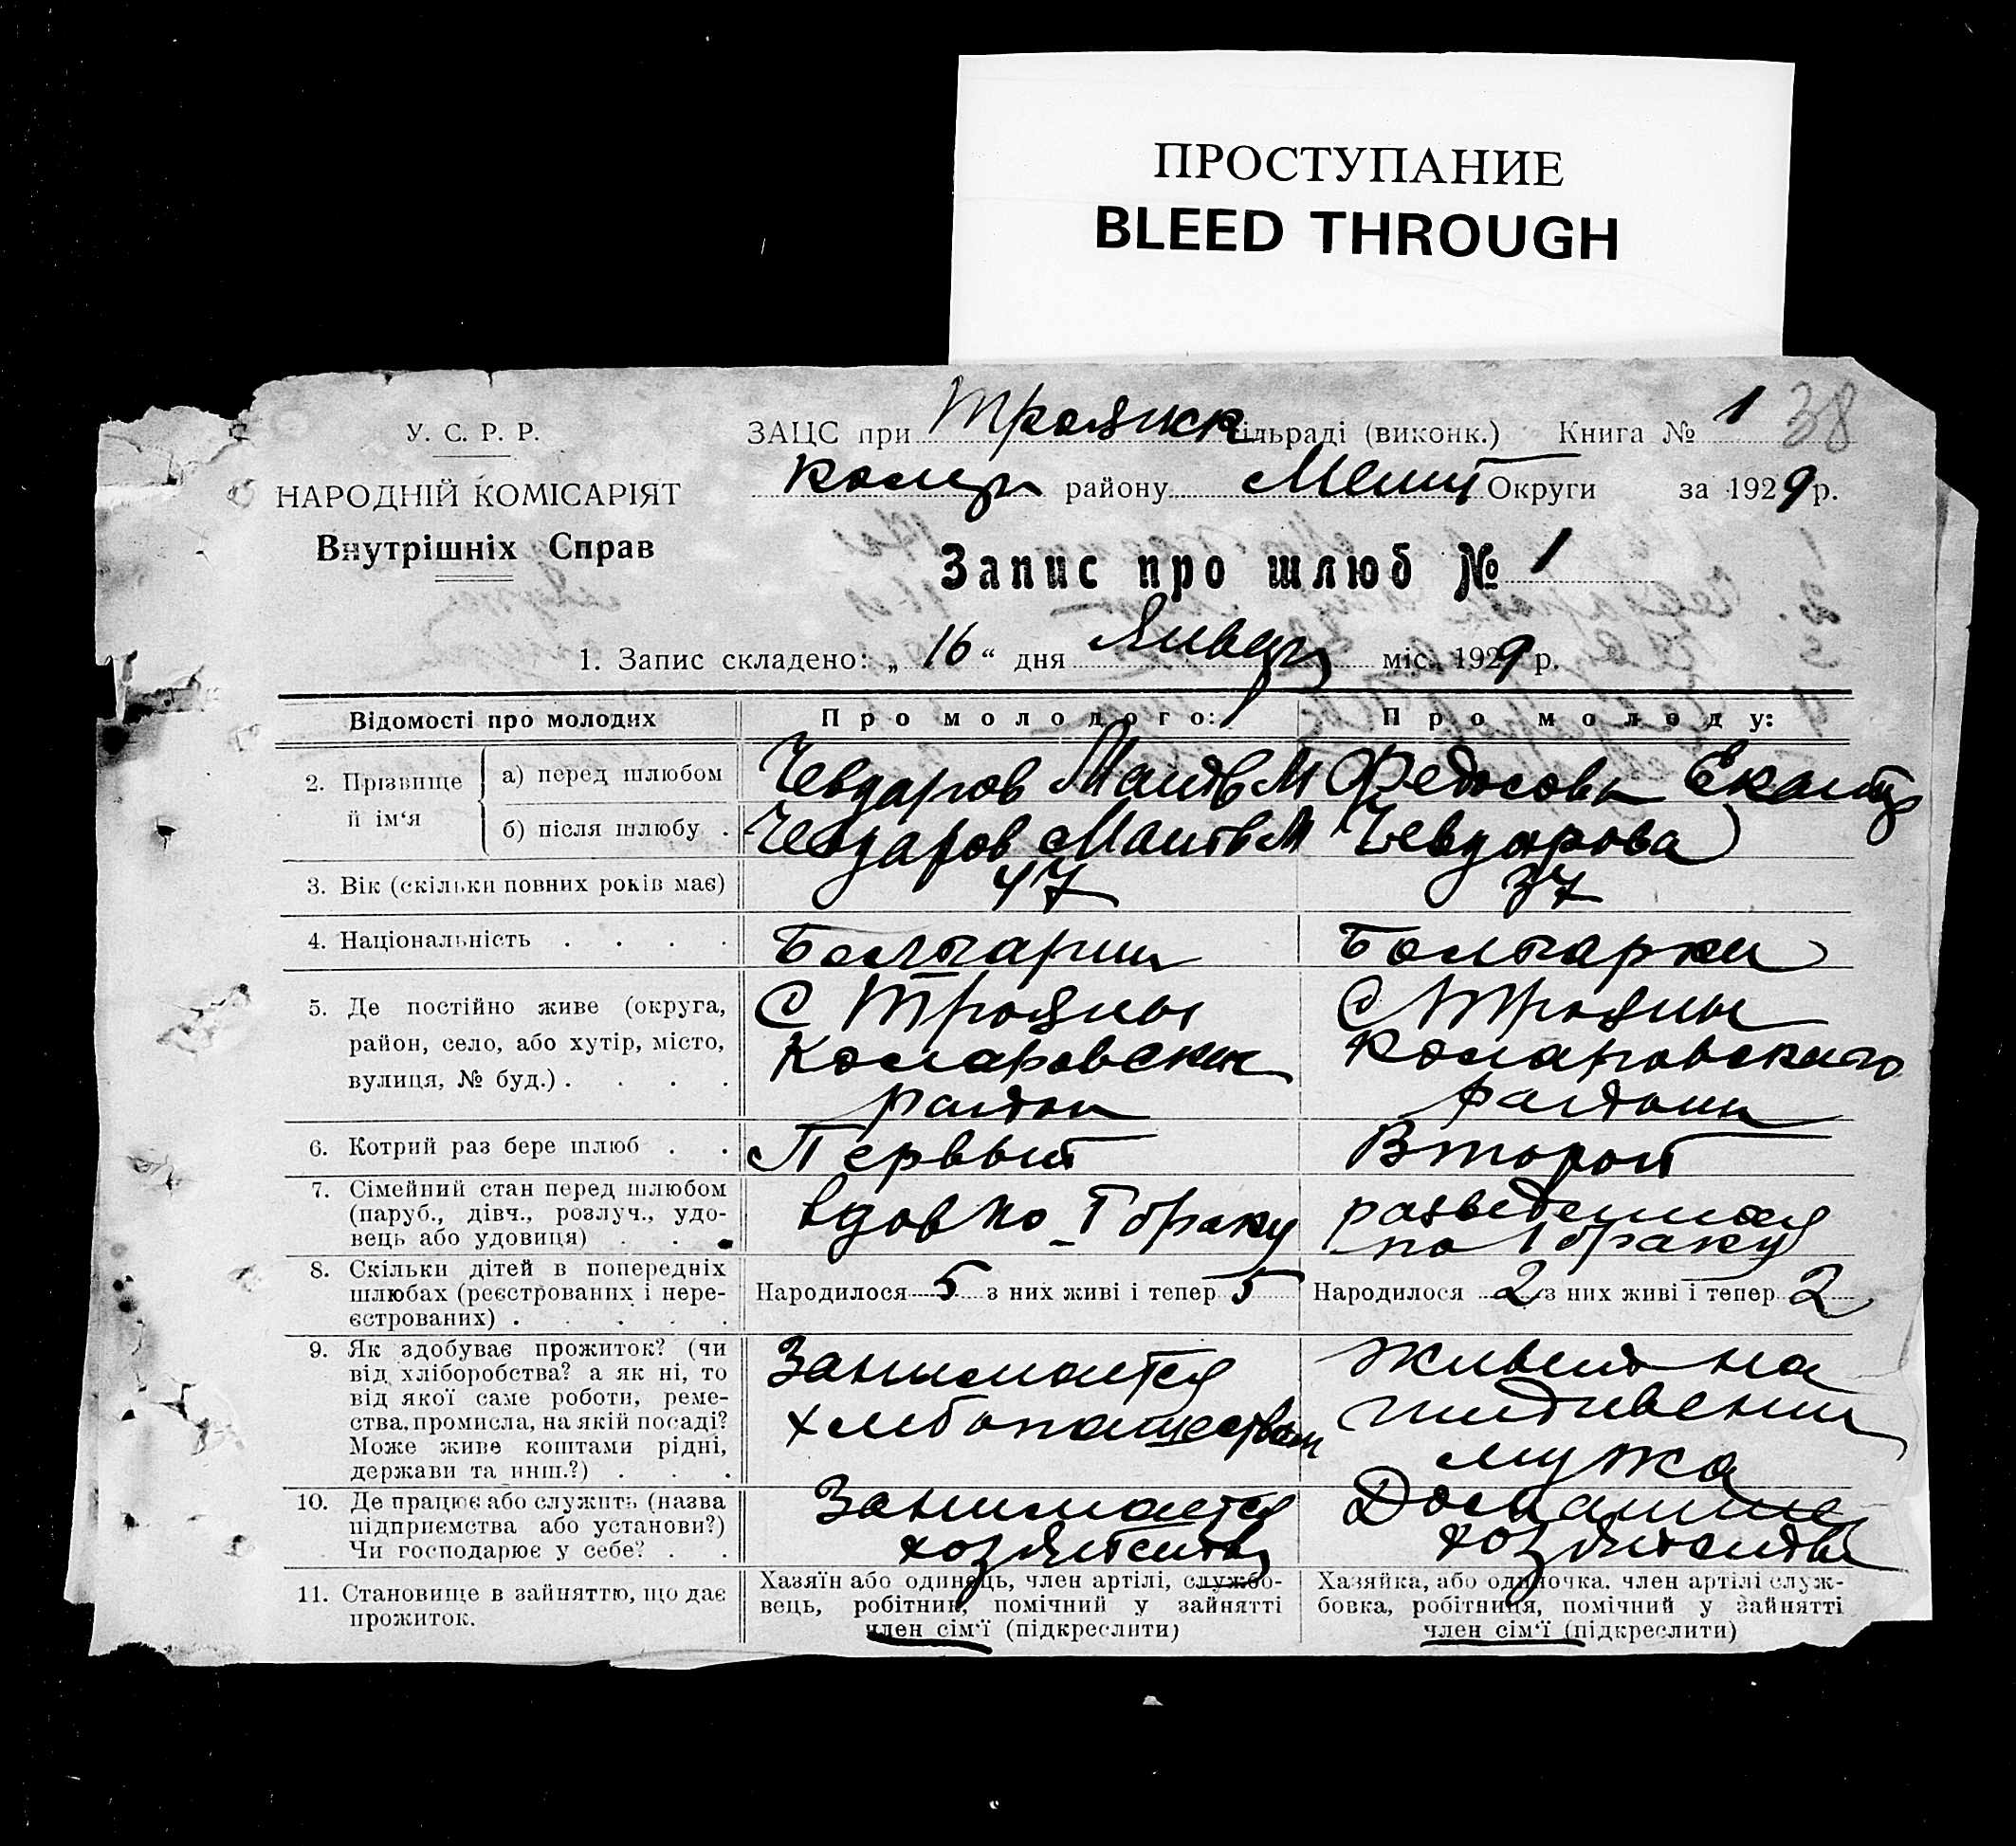 ПРОСТУПАНИЕ
BLEED THROUGH
У. С. Р. Р.
НАРОДНІЙ КОМІСАРІЯТ
Внутрішніх Справ
ЗАЦС при Троянск сільраді (виконк.) Книга № 1 38
району Округи за 1929 р.
Запис про шлюб № 1
1. Запис складено: „ 16 “ дня Январ міс. 1929 р.
Відомості про молодих
Про молодого:
Про молоду:
2. Прізвище й ім‘я
а) перед шлюбом
Чевдаров М
Федосова Екат
б) після шлюбу .
Чевдаров М
Чевдарова
3. Вік (скільки повних років має)
47
37
4. Національність . . . .
Болгарин
Болгарка
5. Де постійно живе (округа,
район, село, або хутір, місто,
вулиця, № буд.) . . . .
С Трояны
Комаровск
район
С Трояны
Комаровского
района
6. Котрий раз бере шлюб . .
Первый
Второй
7. Сімейний стан перед шлюбом
(паруб., дівч., розлуч., удо-
вець або удовиця) . . .
вдов по I браку
разведенная
по I браку
8. Скільки дітей в попередніх
шлюбах (реєстрованих і нере-
єстрованих) . . . . .
Народилося 5 з них живі і тепер 5
Народилося 2 з них живі і тепер 2
9. Як здобуває прожиток? (чи
від хліборобства? а як ні, то
від якої саме роботи, реме-
ства, промисла, на якій посаді?
Може живе коштами рідні,
держави та инш.?) . . .
Занимается
хлебопашеством
живет на
иждивении
мужа
10. Де працює або служить (назва
підприємства або установи?)
Чи господарює у себе? . .
Занимается
хозяйством
Домашнее
хозяйство
11. Становище в зайняттю, що дає
прожиток.
Хазяїн або одинець, член артілі, службо-
вець, робітник, помічний у зайнятті
член сім‘ї (підкреслити)
Хазяйка, або одиночка, член артілі служ-
бовка, робітниця, помічний у зайнятті
член сім‘ї (підкреслити)